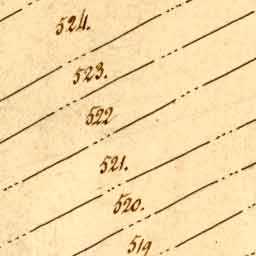 524.
523.
522
521.
520.
519